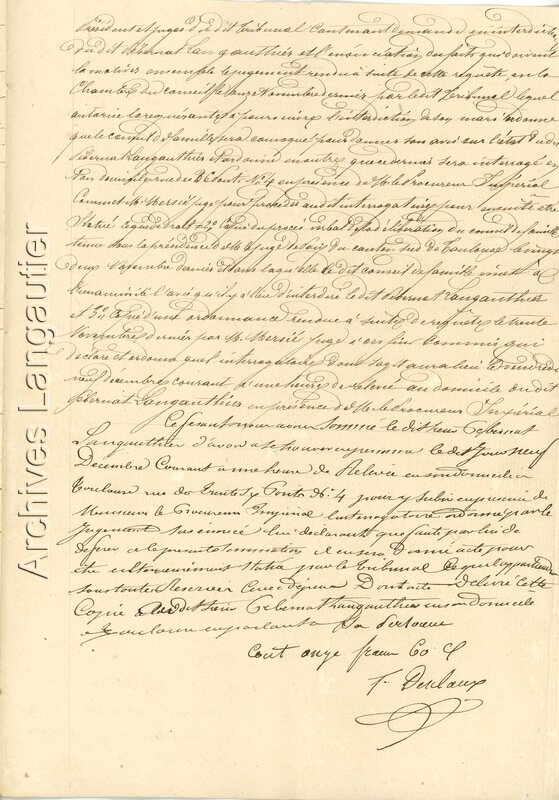 Président et Juges du dit Tribunal Contenant demande en interdiction
du dit Gebernat Langauthier et l'énonciation des faits qui doivent
la motiver ensemble le jugement rendu à suite de cette requete en la
Chambre du conseil le onze Novembre dernier par le dit Tribunal lequel
autorise la requérante à poursuivre l'interdiction de son mari ordonne
que le conseil de famille sera convoqué pour donner son avis sur l'état du dit
Gebernat Langauthier et ordonne en outre que ce dernier sera interrogé en
son domicile rue des Puits No. 4 en présence de M. le Procureur Impérial
Commet M. Mersié juge pour procéder au dit interrogatoire pour ensuite etre
statué ce que de droit 2o. Copie du procès verbal de la délibération du conseil de famille
tenue sous la présidence de M. le juge de Paix du canton sud de Toulouse le vingt
deux Novembre dernier et dans laquelle le dit conseil de famille émet à
l'unanimité l'avis qu'il y a lieu d'interdire le dit Gebernat Langauthier
et 3o. Copie d'une ordonnance rendue à suite de requête le trente
Novembre dernier par M. Mersié Juge à ces fins commis qui
Déclare et ordonne que l'interrogatoire dont s'agit aura lieu Vendredi
neuf décembre courant à une heure de relevée au domicile du dit
Gebernat Langauthier en présence de M. le Procureur Impérial
Ce faisant nous avons sommé le dit sieur Gebernat
Langauthier d'avoir à se trouver en personne le dit Jour neuf
Décembre Courant à une heure de Relevée en son domicile à
Toulouse rue des Trente Six Ponts No. 4 pour y subir en présence de
Monsieur le Procureur Impérial l'interrogatoire ordonné par le
Jugement sus énoncé lui déclarant que faute par lui de
déférer à la présente sommation il en sera Donné acte pour
être ultérieurement statué par le Tribunal ce qu'il appartiendra
sous toutes Reserves Cinq Dépens Dont acte Delivré Cette
Copie au dit sieur Gebernat Langauthier en son domicile
à Toulouse en parlant à Sa personne
Cout onze francs 60 c
F. Desclaux
Archives Langautier